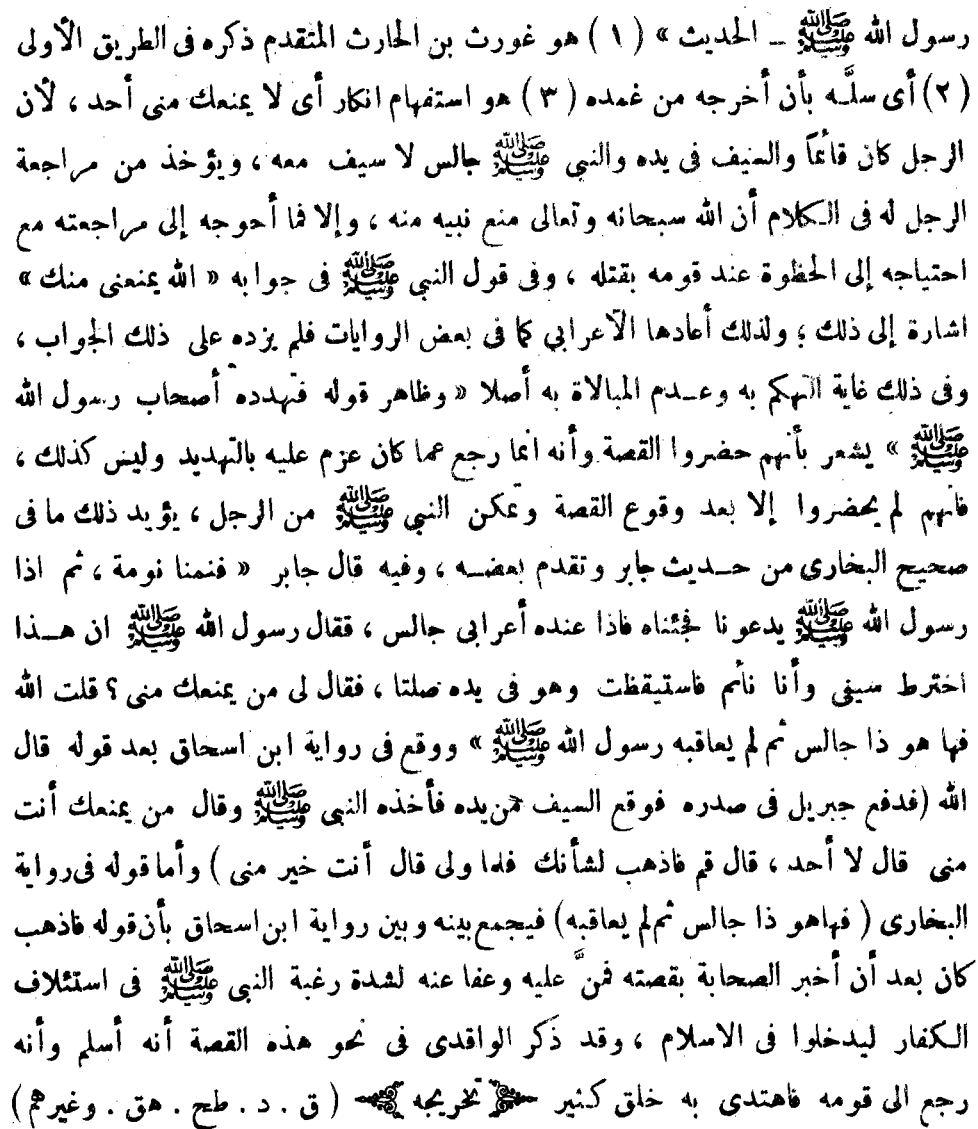 رسول الله ﷺ ــ الحديث » ( ١ ) هو غورث بن الحارث المتقدم ذكره فى الطريق الأولى
( ٢ ) أى سلَّه بأن أخرجه من غمده ( ٣ ) هو استفهام انكار أى لا يمنعك منى أحد ، لأن
الرجل كان قائماً والسيف فى يده والنبى ﷺ جالس لا سيف معه ، ويؤخذ من مراجعة
الرجل له فى الكلام أن الله سبحانه وتعالى منع نبيه منه ، وإلا فما أحوجه إلى مراجعته مع
احتياجه إلى الحظوة عند قومه بقتله ، وفى قول النبى ﷺ فى جوابه « الله يمنعنى منك »
اشارة إلى ذلك ؛ ولذلك أعادها الأعرابي كما فى بعض الروايات فلم يزده على ذلك الجواب ،
وفى ذلك غاية التهكم به وعدم المبالاة به أصلا « وظاهر قوله فتهدده أصحاب رسول الله
ﷺ » يشعر بأنهم حضروا القصة وأنه انما رجع عما كان عزم عليه بالتهديد وليس كذلك ،
فانهم لم يحضروا إلا بعد وقوع القصة وتمكن النبي ﷺ من الرجل ، يؤيد ذلك ما فى
صحيح البخارى من حديث جابر وتقدم بعضه ، وفيه قال جابر « فنمنا نومة ، ثم اذا
رسول الله ﷺ يدعونا فجئناه فاذا عنده أعرابى جالس ، فقال رسول الله ﷺ ان هذا
اخترط سيفى وأنا نائم فاستيقظت وهو فى يده صلتا ، فقال لى من يمنعك منى ؟ قلت الله
فها هو ذا جالس ثم لم يعاقبه رسول الله ﷺ » ووقع فى رواية ابن اسحاق بعد قوله قال
الله (فدفع جبريل فى صدره فوقع السيف من يده فأخذه النبى ﷺ وقال من يمنعك أنت
منى قال لا أحد ، قال قم فاذهب لشأنك فلما ولى قال أنت خير منى ) وأما قوله فى رواية
البخارى ( فهاهو ذا جالس ثم لم يعاقبه) فيجمع بينه وبين رواية ابن اسحاق بأن قوله فاذهب
كان بعد أن أخبر الصحابة بقصته فمنَّ عليه وعفا عنه لشدة رغبة النبى ﷺ فى استئلاف
الكفار ليدخلوا فى الاسلام ، وقد ذكر الواقدى فى نحو هذه القصة أنه أسلم وأنه
رجع الى قومه فاهتدى به خلق كثير ﴿ تخريجه ﴾ ( ق . د . طح . هق . وغيرهم )